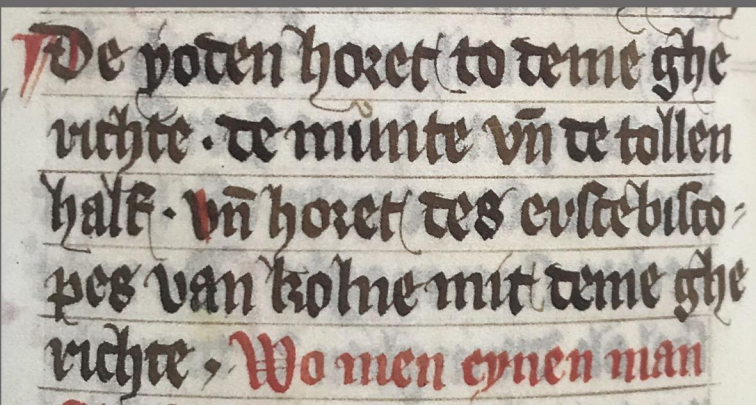 De yoden horet to deme ghe
richte · de munte vn̄ de tollen
half · vn̄ horet des erſcebiſco-
pes van kolne mit deme ghe
richte · Wo men eynen man